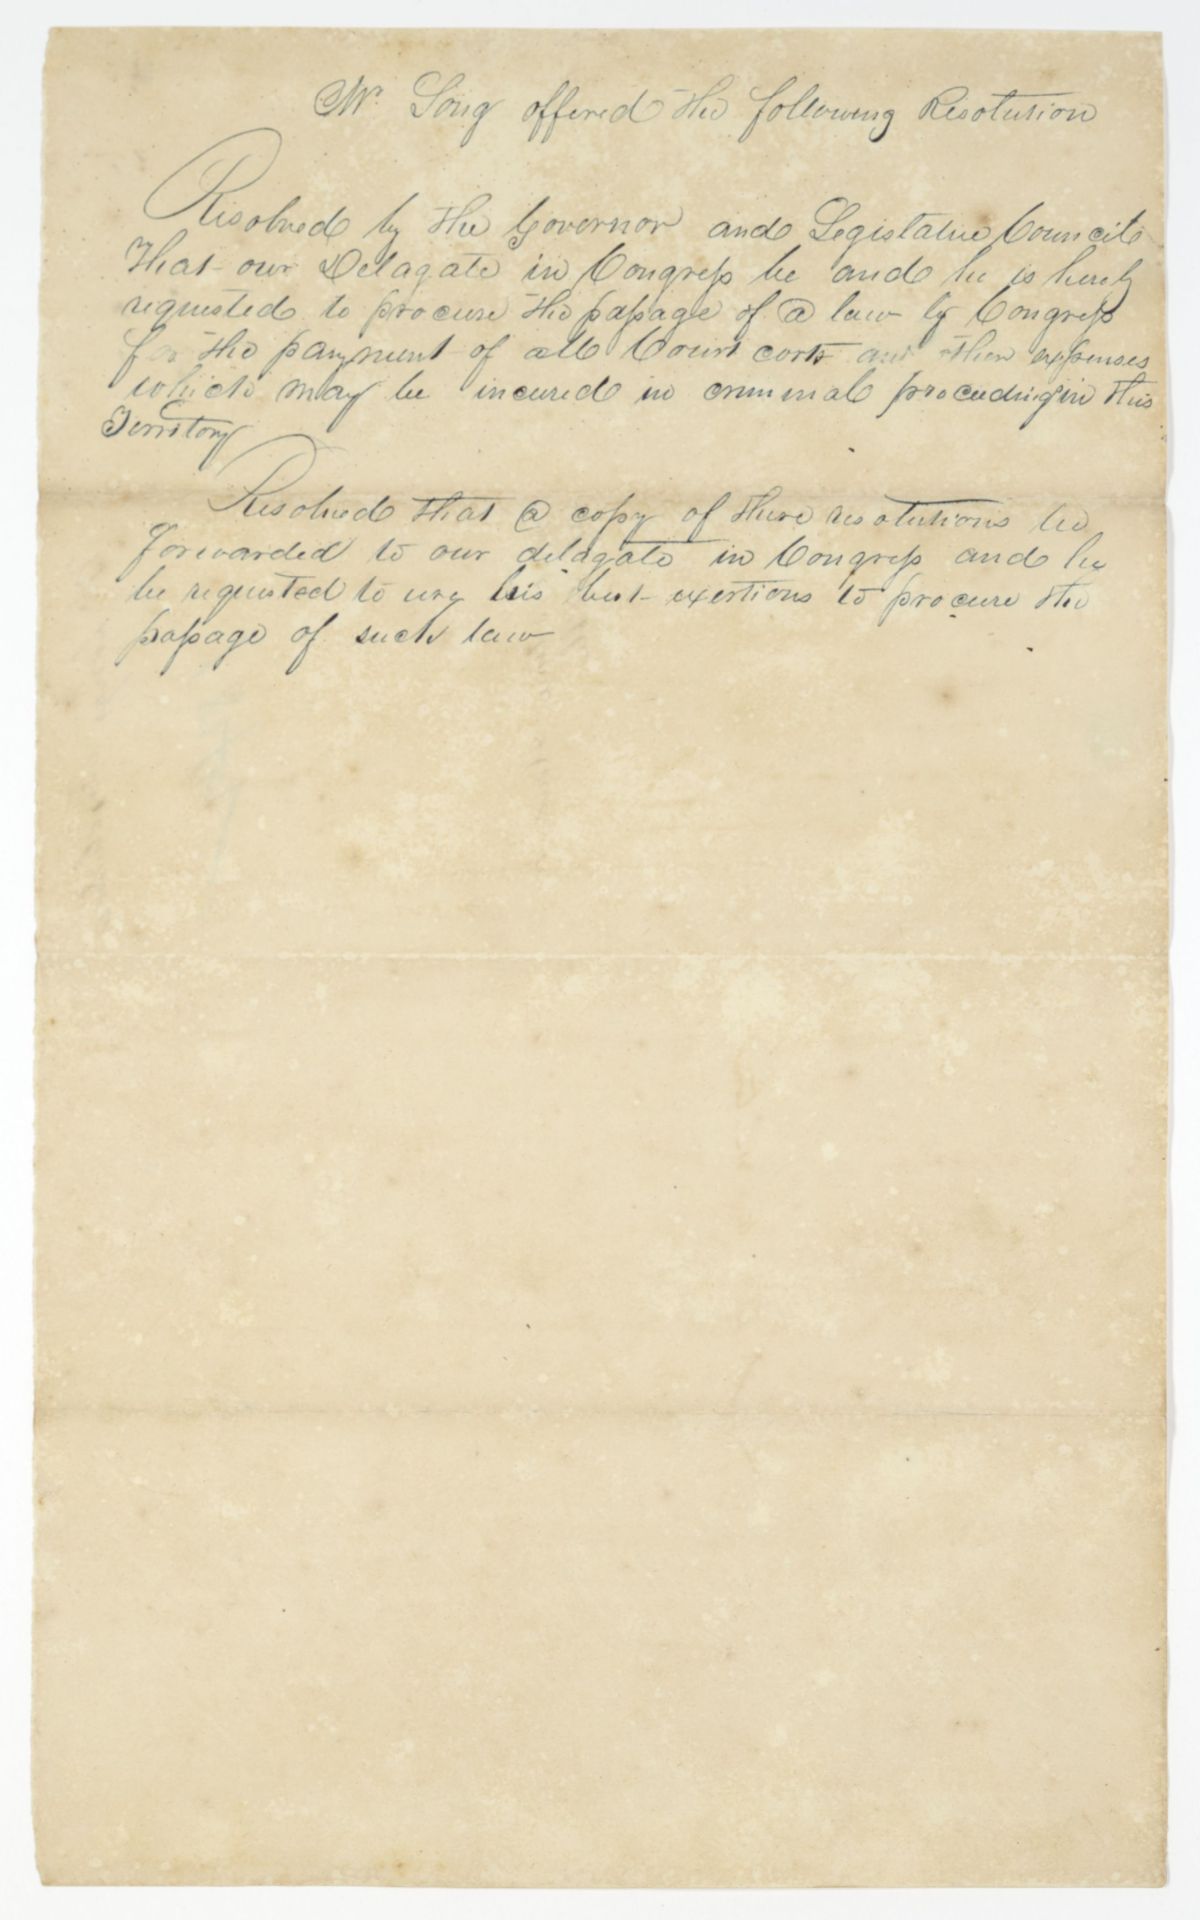 Mr. Long offered the following Resolution
Resolved by the Governor and Legislative Council
That our Delagate in Congress be and he is hereby
requested to procure the passage of a law by Congress
for the payment of all Court costs and other expenses
which may be incured in criminal proceeding in this
Territory
Resolved that a copy of these resolutions be
forwarded to our delagate in Congress and he
be requested to use his best exertions to procure the
passage of such law